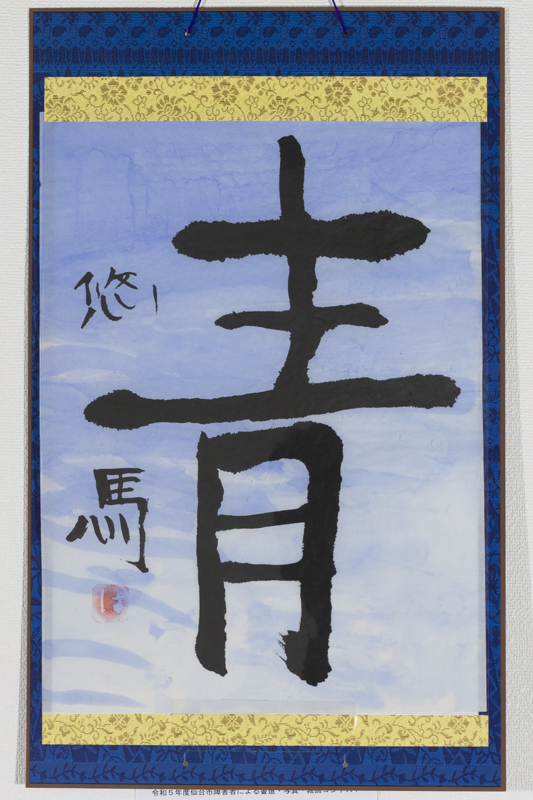 青
悠馬
令和5年度仙台市障害者による書道・写真・絵画コンテスト